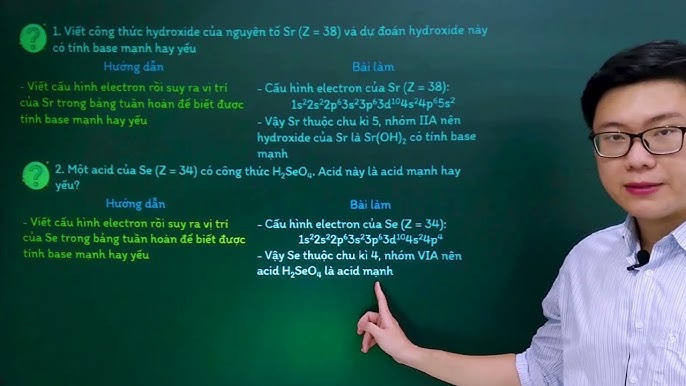 1. Viết công thức hydroxide của nguyên tố Sr (Z = 38) và dự đoán hydroxide này
có tính base mạnh hay yếu
Hướng dẫn
- Viết cấu hình electron rồi suy ra vị trí
của Sr trong bảng tuần hoàn để biết được
tính base mạnh hay yếu
Bài làm
- Cấu hình electron của Sr (Z = 38):
1s²2s²2p⁶3s²3p⁶3d¹⁰4s²4p⁶5s²
- Vậy Sr thuộc chu kì 5, nhóm IIA nên
hydroxide của Sr là Sr(OH)₂ có tính base
mạnh
2. Một acid của Se (Z = 34) có công thức H₂SeO₄. Acid này là acid mạnh hay
yếu?
Hướng dẫn
- Viết cấu hình electron rồi suy ra vị trí
của Se trong bảng tuần hoàn để biết được
tính base mạnh hay yếu
Bài làm
- Cấu hình electron của Se (Z = 34):
1s²2s²2p⁶3s²3p⁶3d¹⁰4s²4p⁴
- Vậy Se thuộc chu kì 4, nhóm VIA nên
acid H₂SeO₄ là acid mạnh